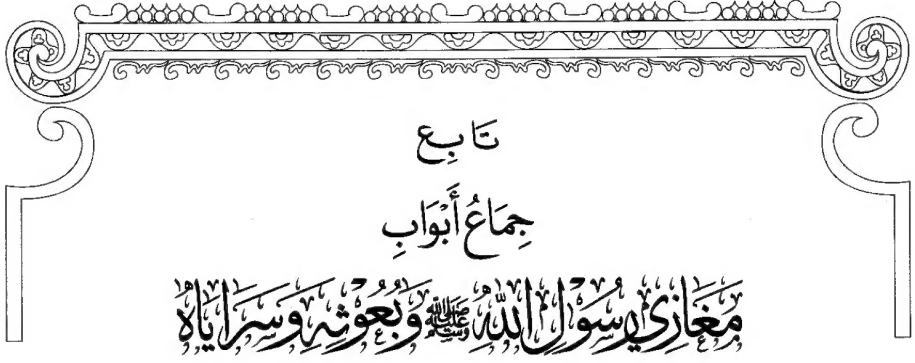 تَابِع
جِمَاعُ أَبْوَابِ
مَغَازِي رَسُولِ اللَّهِ ﷺ وَبُعُوثِهِ وَسَرَايَاهُ